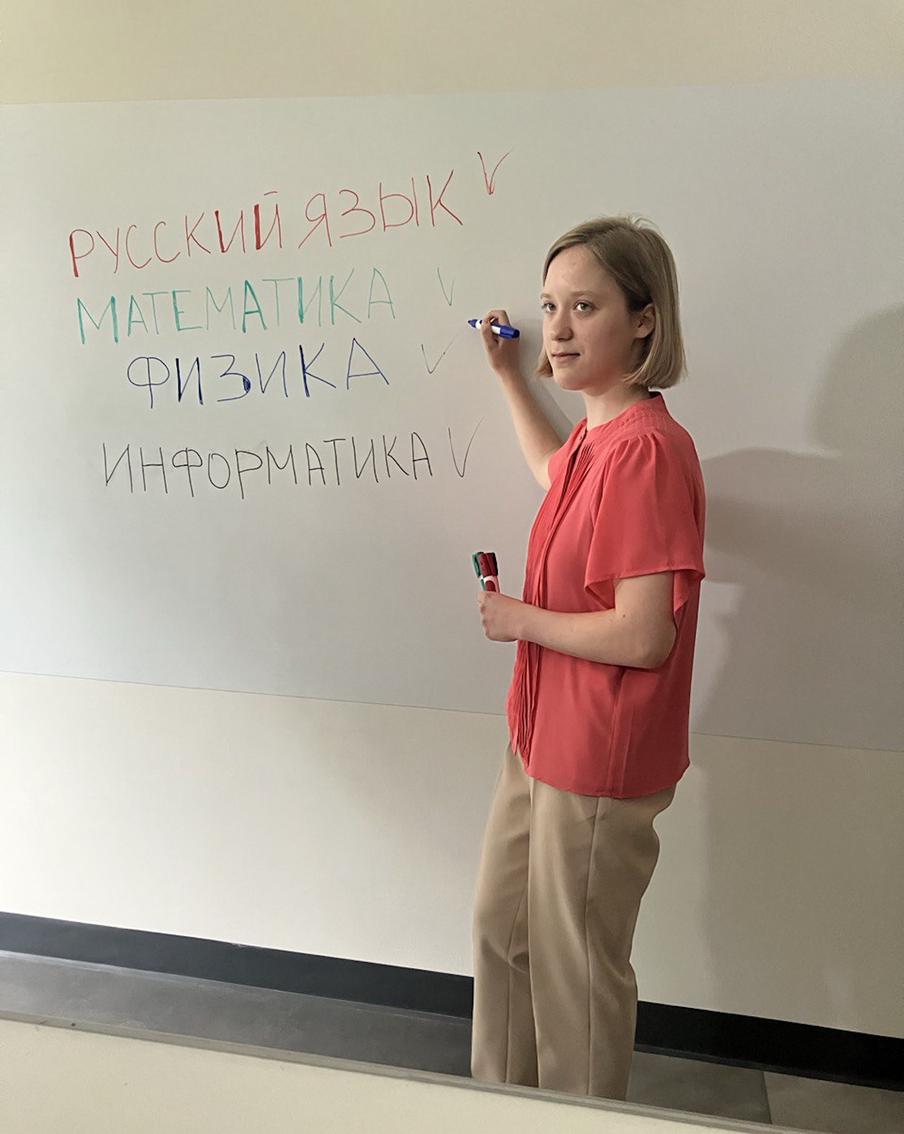 РУССКИЙ ЯЗЫК
МАТЕМАТИКА
ФИЗИКА
ИНФОРМАТИКА